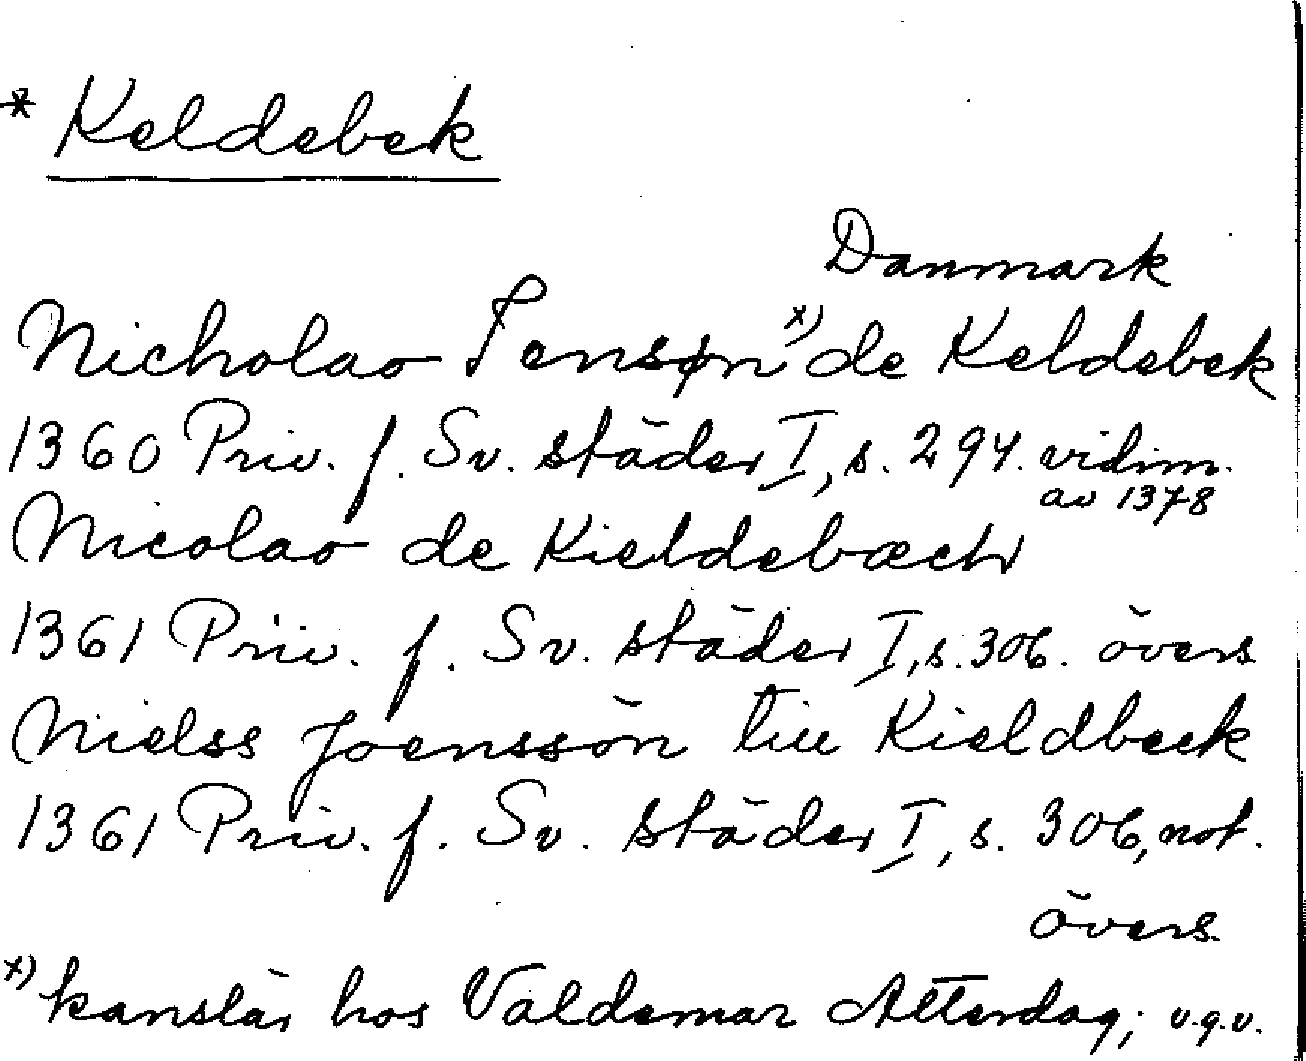 * Keldebek
Danmark
Nicholao Jensøn x) de Keldebek
1360 Priv. f. Sv. städer I, s. 294. vidim.
av 1378
Nicolao de Kieldebæch
1361 Priv. f. Sv. städer I, s. 306. övers
Nielss Joenssön till Kieldbeek
1361 Priv. f. Sv. städer I, s. 306, not.
övers.
x) kanslär hos Valdemar Atterdag;